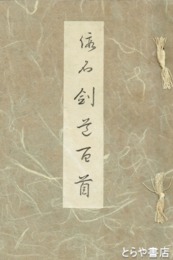 俵石剣道百首
© とらや書店